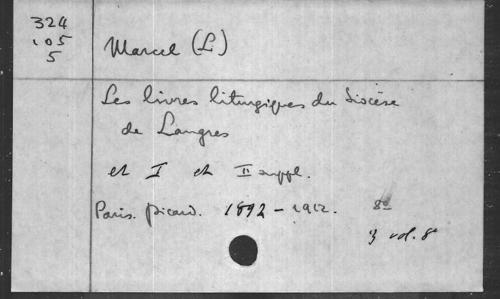 324
105
5
Marcel (L)
Les livres liturgiques du Diocèse
de Langres
et I et II suppl.
Paris. Picard. 1892 - 1912. 8º
3 vol. 8º